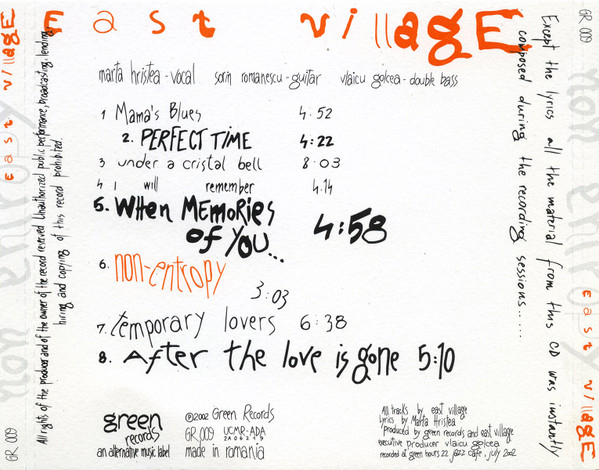 East village
marta hristea - vocal sorin romanescu - guitar vlaicu golcea - double bass
1 Mama's Blues 4.52
2. PERFECT TIME 4:22
3 under a cristal bell 8:03
4 I will remember 4.14
5. WHEN MEMORIES
of YOU... 4:58
6. non-entropy
3:03
7. temporary lovers 6:38
8. After the love is gone 5:10
green
records
an alternative music label
©2002 Green Records
GR 009 UCMR-ADA
2A06219
made in romania
All tracks by east village
lyrics by Marta Hristea
produced by green records and east village
executive producer vlaicu golcea
recorded at green hours 22 jazz cafe, july 2002
Except the lyrics all the material from this CD was instantly
composed during the recording sessions.....
All rights of the producer and of the owner of the record reserved. Unauthorized public performance, broadcasting, lending,
hiring and copying of this record prohibited.
east villagE
GR 009
non entropy
GR 009
non entropy
east villagE